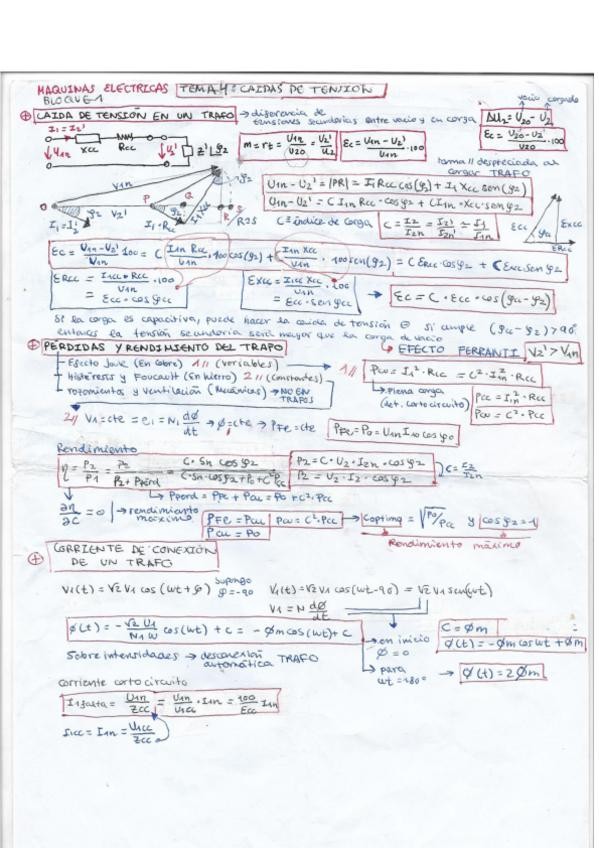 MAQUINAS ELECTRICAS TEMA 4: CAIDAS DE TENSIÓN
BLOQUE 1
CAIDA DE TENSIÓN EN UN TRAFO → diferencia de tensiones secundarias entre vacío y en carga
vacío cargado
ΔU2 = U20 - U2
I1 = I2'
Xcc Rcc
U1n U2' Z'L φ2
m = rt = U1n/U20 = U2'/U2
εc = U1n - U2'/U1n · 100
εc = U20 - U2/U20 · 100
rama // despreciada al cargar TRAFO
U1n - U2' = |PR| = I1 Rcc cos(φ2) + I1 Xcc sen(φ2)
U1n - U2' = C I1n Rcc · cosφ2 + C I1n · Xcc sen φ2
C ≡ índice de carga C = I2/I2n = I2'/I2n' ≃ I1/I1n
εc = U1n - U2'/U1n 100 = C I1n Rcc/U1n · 100 cos(φ2) + I1n Xcc/U1n · 100 sen(φ2) = C εRcc · cosφ2 + C εxcc sen φ2
εRcc = I1cc · Rcc/U1n · 100 = εcc · cosφcc
εXcc = I1cc Xcc/U1n · 100 = εcc · senφcc
→ εc = C · εcc · cos(φcc - φ2)
Si la carga es capacitiva, puede hacer la caida de tensión ⊖ si cumple (φcc - φ2) > 90º
entonces la tensión secundaria será mayor que la carga de vacío
→ EFECTO FERRANTI V2' > V1n
PERDIDAS Y RENDIMIENTO DEL TRAFO
- Efecto Joule (En Cobre) 1// (variables)
- Histéresis y Foucault (En hierro) 2// (constantes)
- rozamientos y ventilación (Mecánicas) → NO EN TRAFOS
1// Pcu = I1² · Rcc = C² · I1n² · Rcc
→ Plena carga (det. cortocircuito)
Pcc = I1n² · Rcc
Pcu = C² · Pcc
2// V1 = cte = e1 = N1 dφ/dt → φ = cte → PFe = cte
PFe = P0 = U1n I0 cos φ0
Rendimiento
η = P2/P1 = P2/P2 + Pperd = C · Sn cosφ2/C · Sn cosφ2 + P0 + C² Pcc
P2 = C · U2 · I2n · cosφ2
P2 = U2 · I2 · cosφ2
C = I2/I2n
→ Pperd = PFe + Pcu = P0 + C² · Pcc
∂η/∂C = 0 → rendimiento máximo
PFe = Pcu Pcu = C² · Pcc
Pcu = P0
→ Coptimo = √P0/Pcc y cosφ2 = 1
Rendimiento máximo
CORRIENTE DE CONEXIÓN DE UN TRAFO
V1(t) = √2 V1 cos (wt + φ) Supongo φ = -90 V1(t) = √2 V1 cos(wt - 90) = √2 V1 sen(wt)
V1 = N dφ/dt
φ(t) = - √2 V1/N1 W cos(wt) + C = - φm cos(wt) + C
→ en inicio φ = 0
C = φm
φ(t) = -φm cos wt + φm
→ para wt = 180º → φ(t) = 2φm
Sobre intensidades → desconexión automática TRAFO
corriente cortocircuito
I1falta = U1n/Zcc = U1n/U1cc · I1n = 100/εcc I1n
I1cc = I1n = U1cc/Zcc